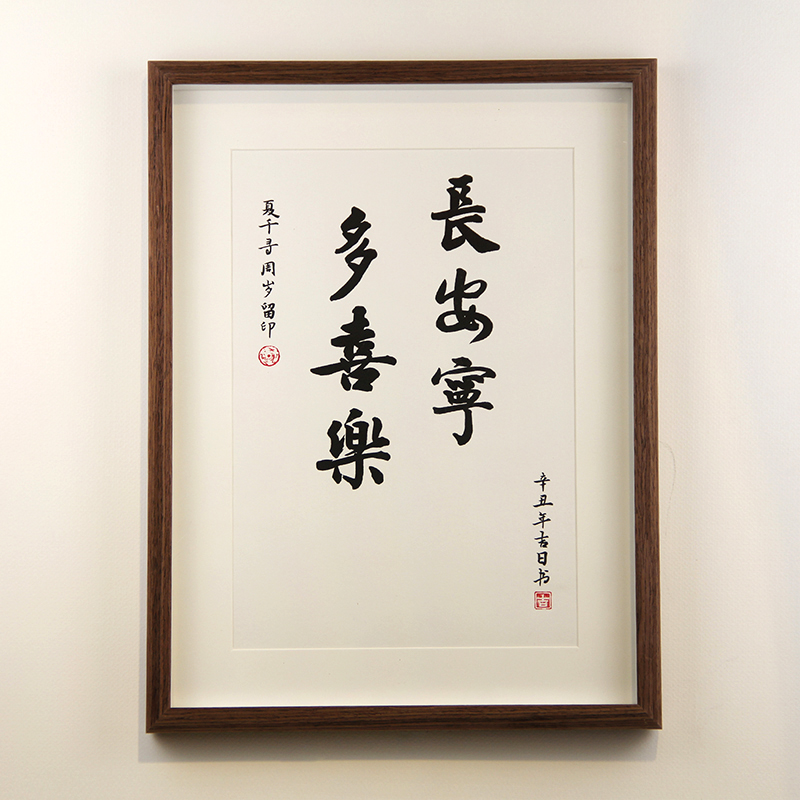 長安寧
多喜樂
夏千寻周岁留印
辛丑年吉日书
吉